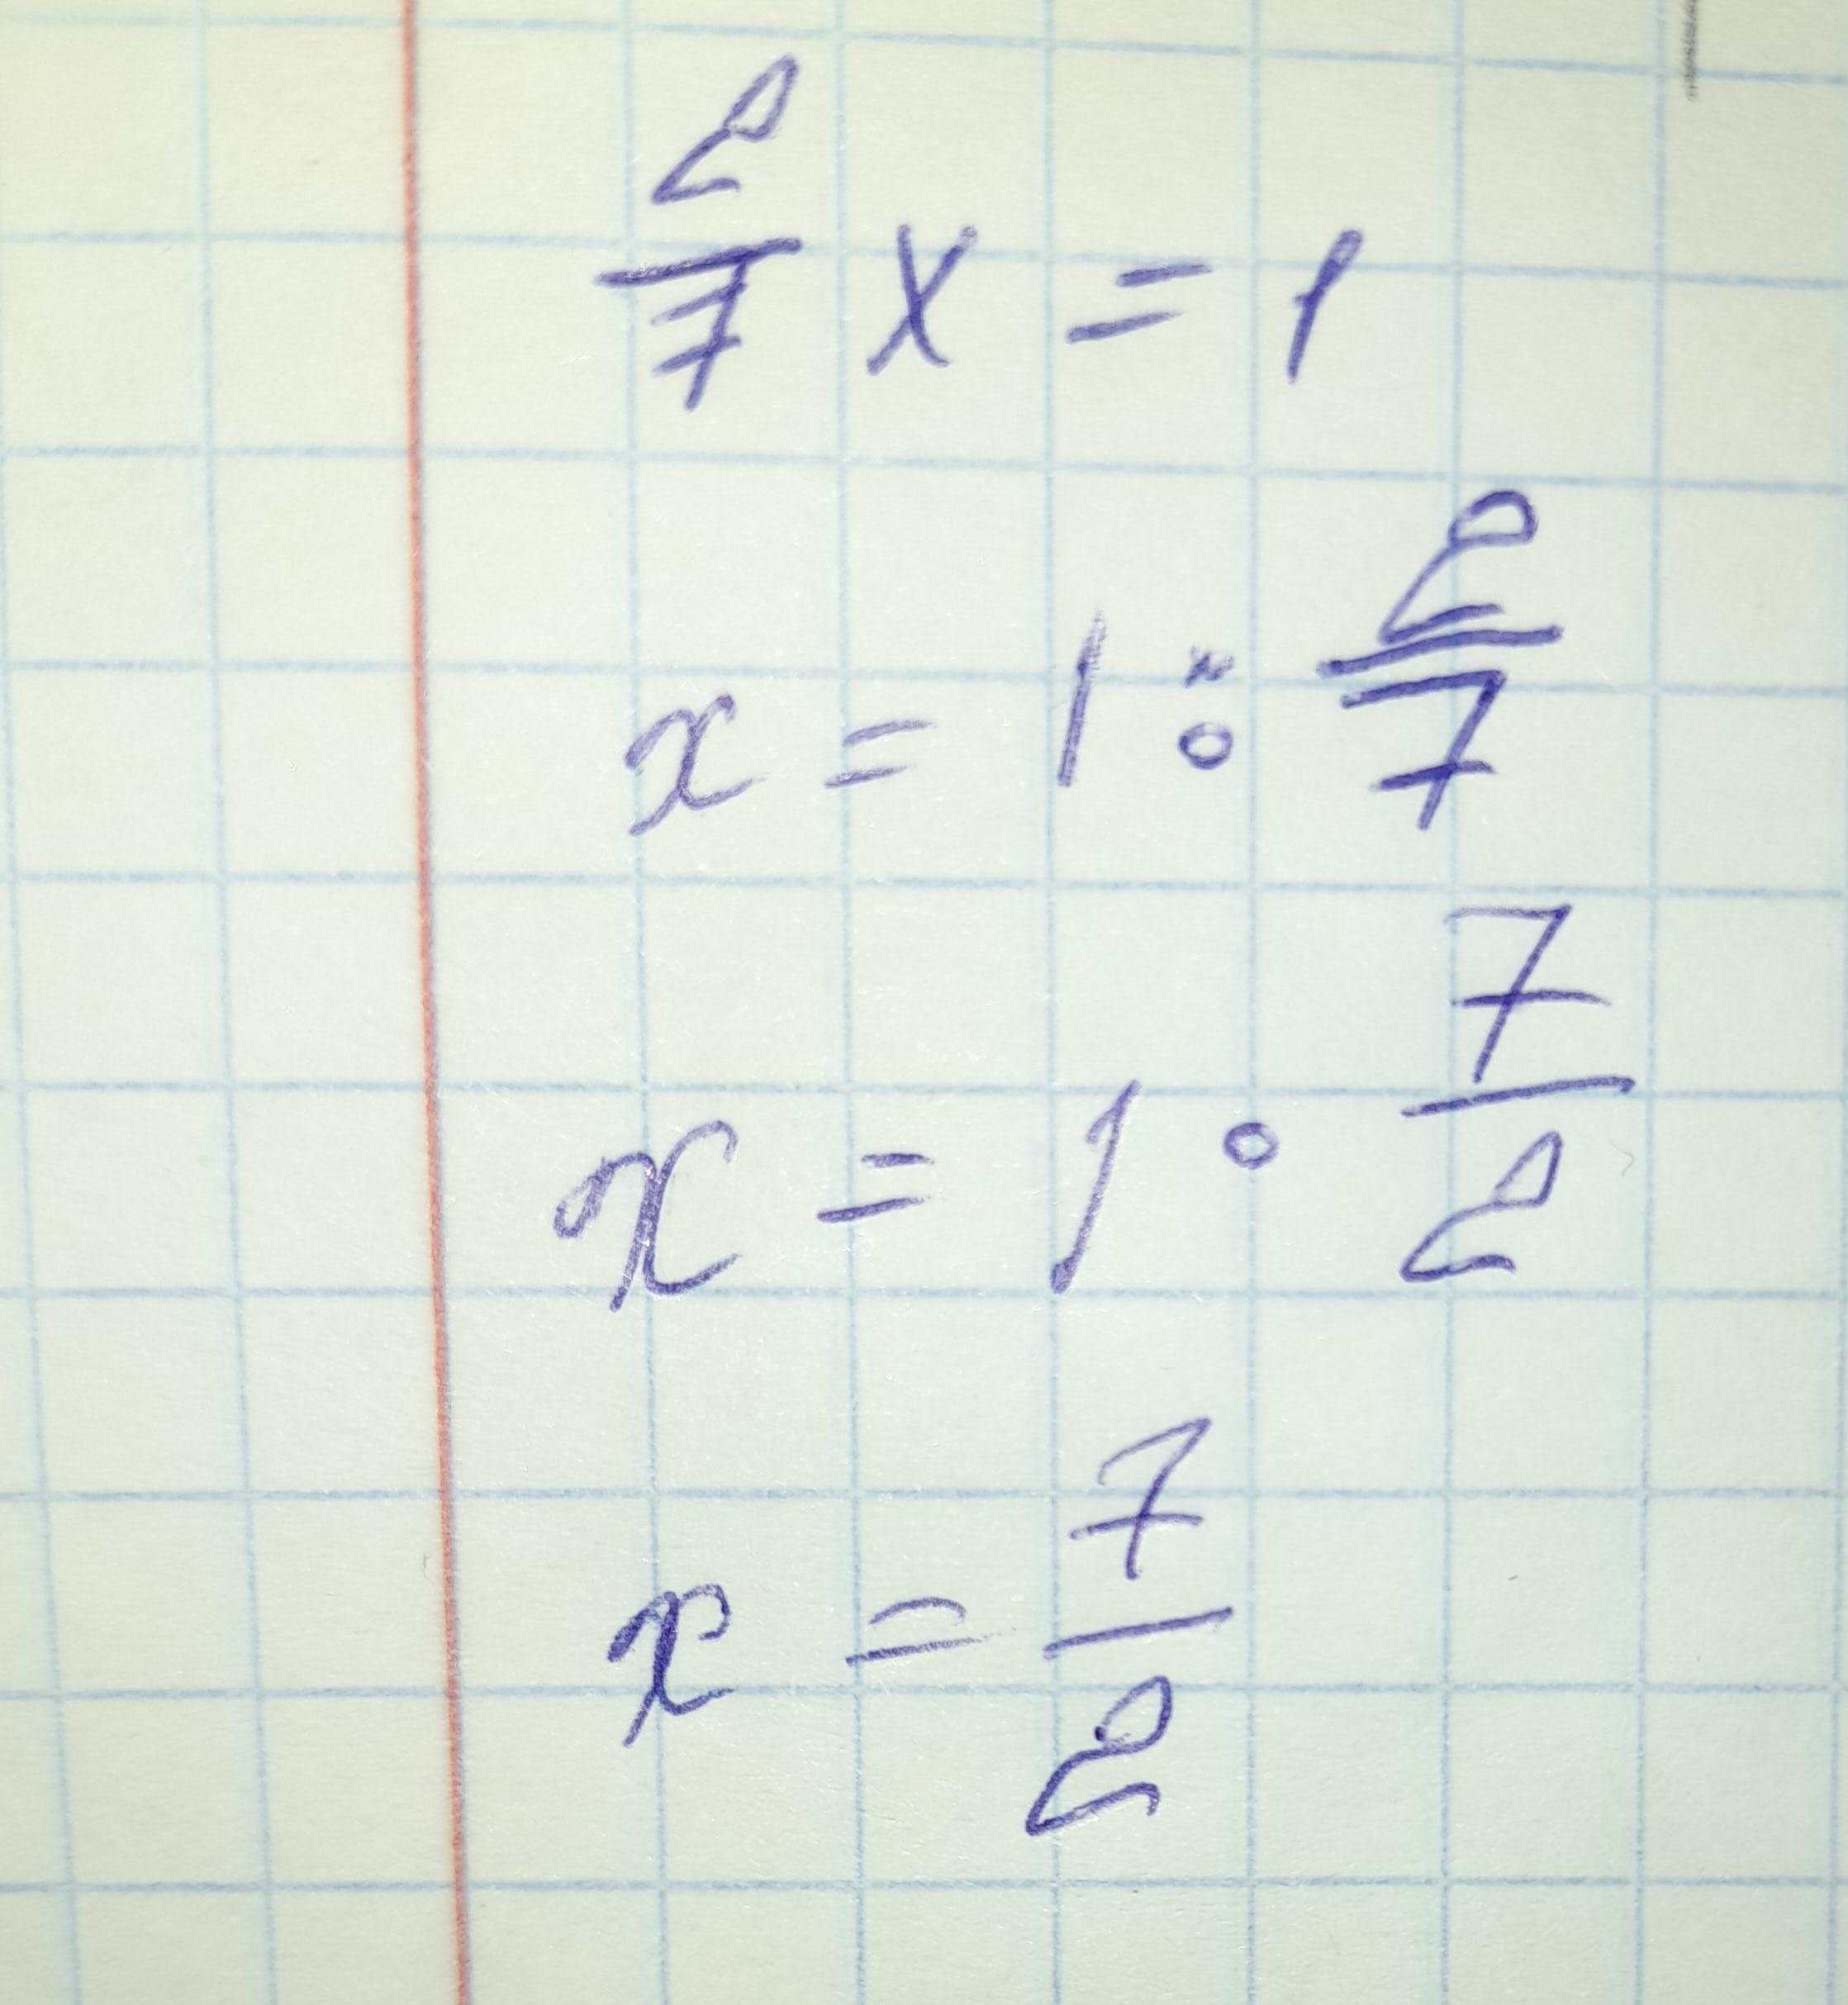 2/7 x = 1
x = 1 : 2/7
x = 1 · 7/2
x = 7/2